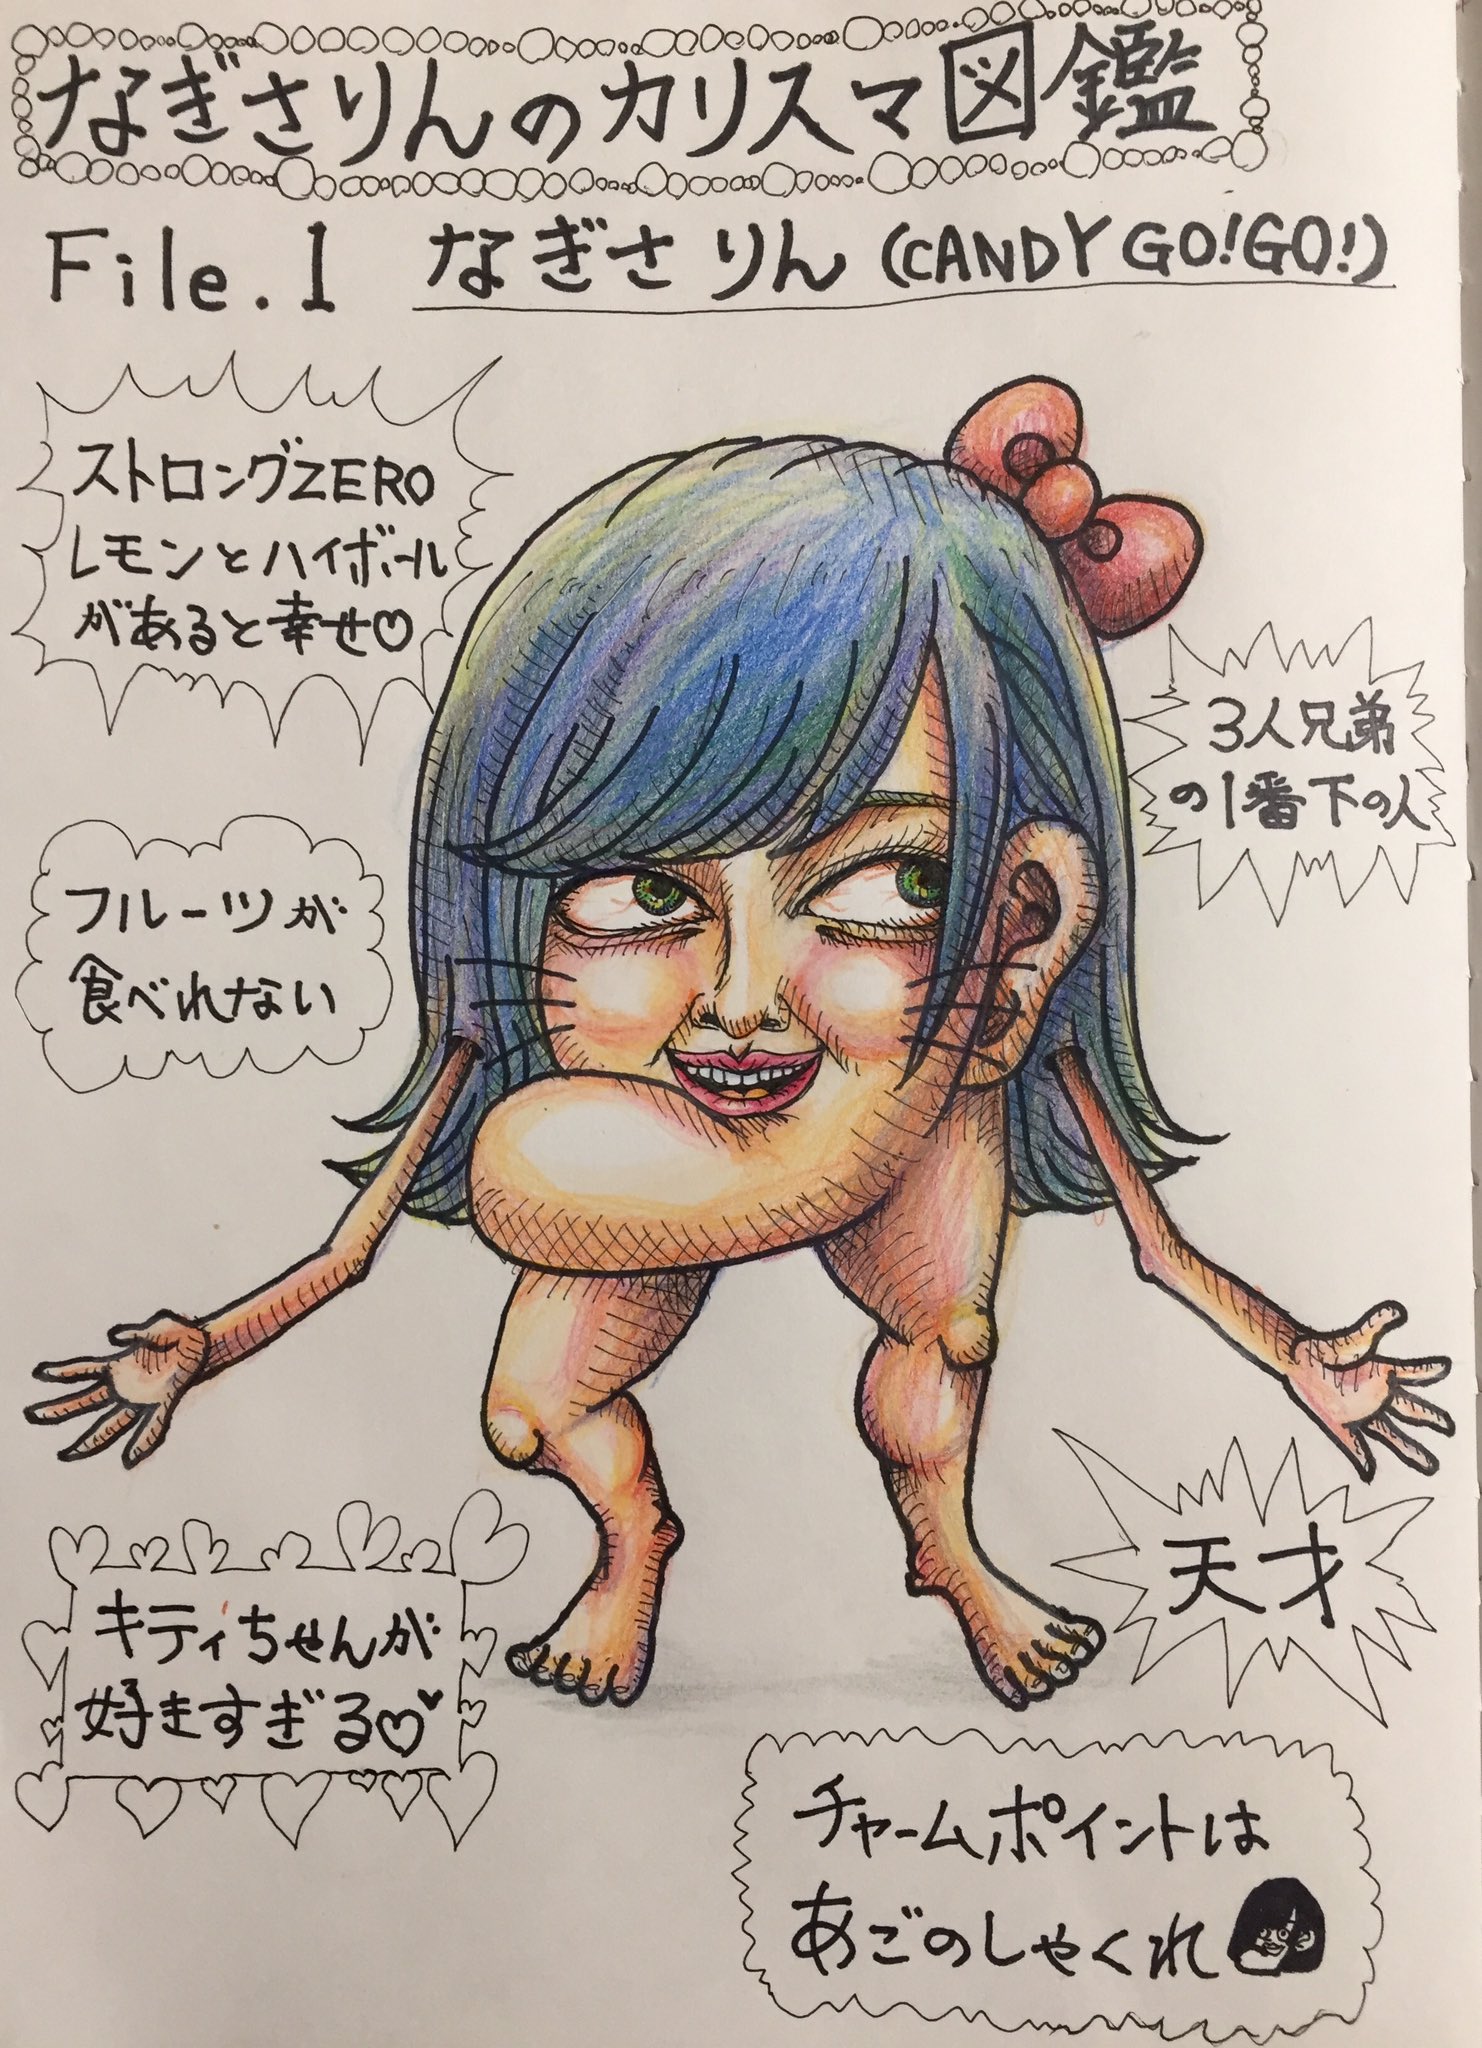 なぎさりんのカリスマ図鑑
File.1 なぎさりん(CANDY GO!GO!)
ストロングZERO
レモンとハイボール
があると幸せ♡
3人兄弟
の1番下の人
フルーツが
食べれない
天才
キティちゃんが
好きすぎる♡♥
チャームポイントは
あごのしゃくれ